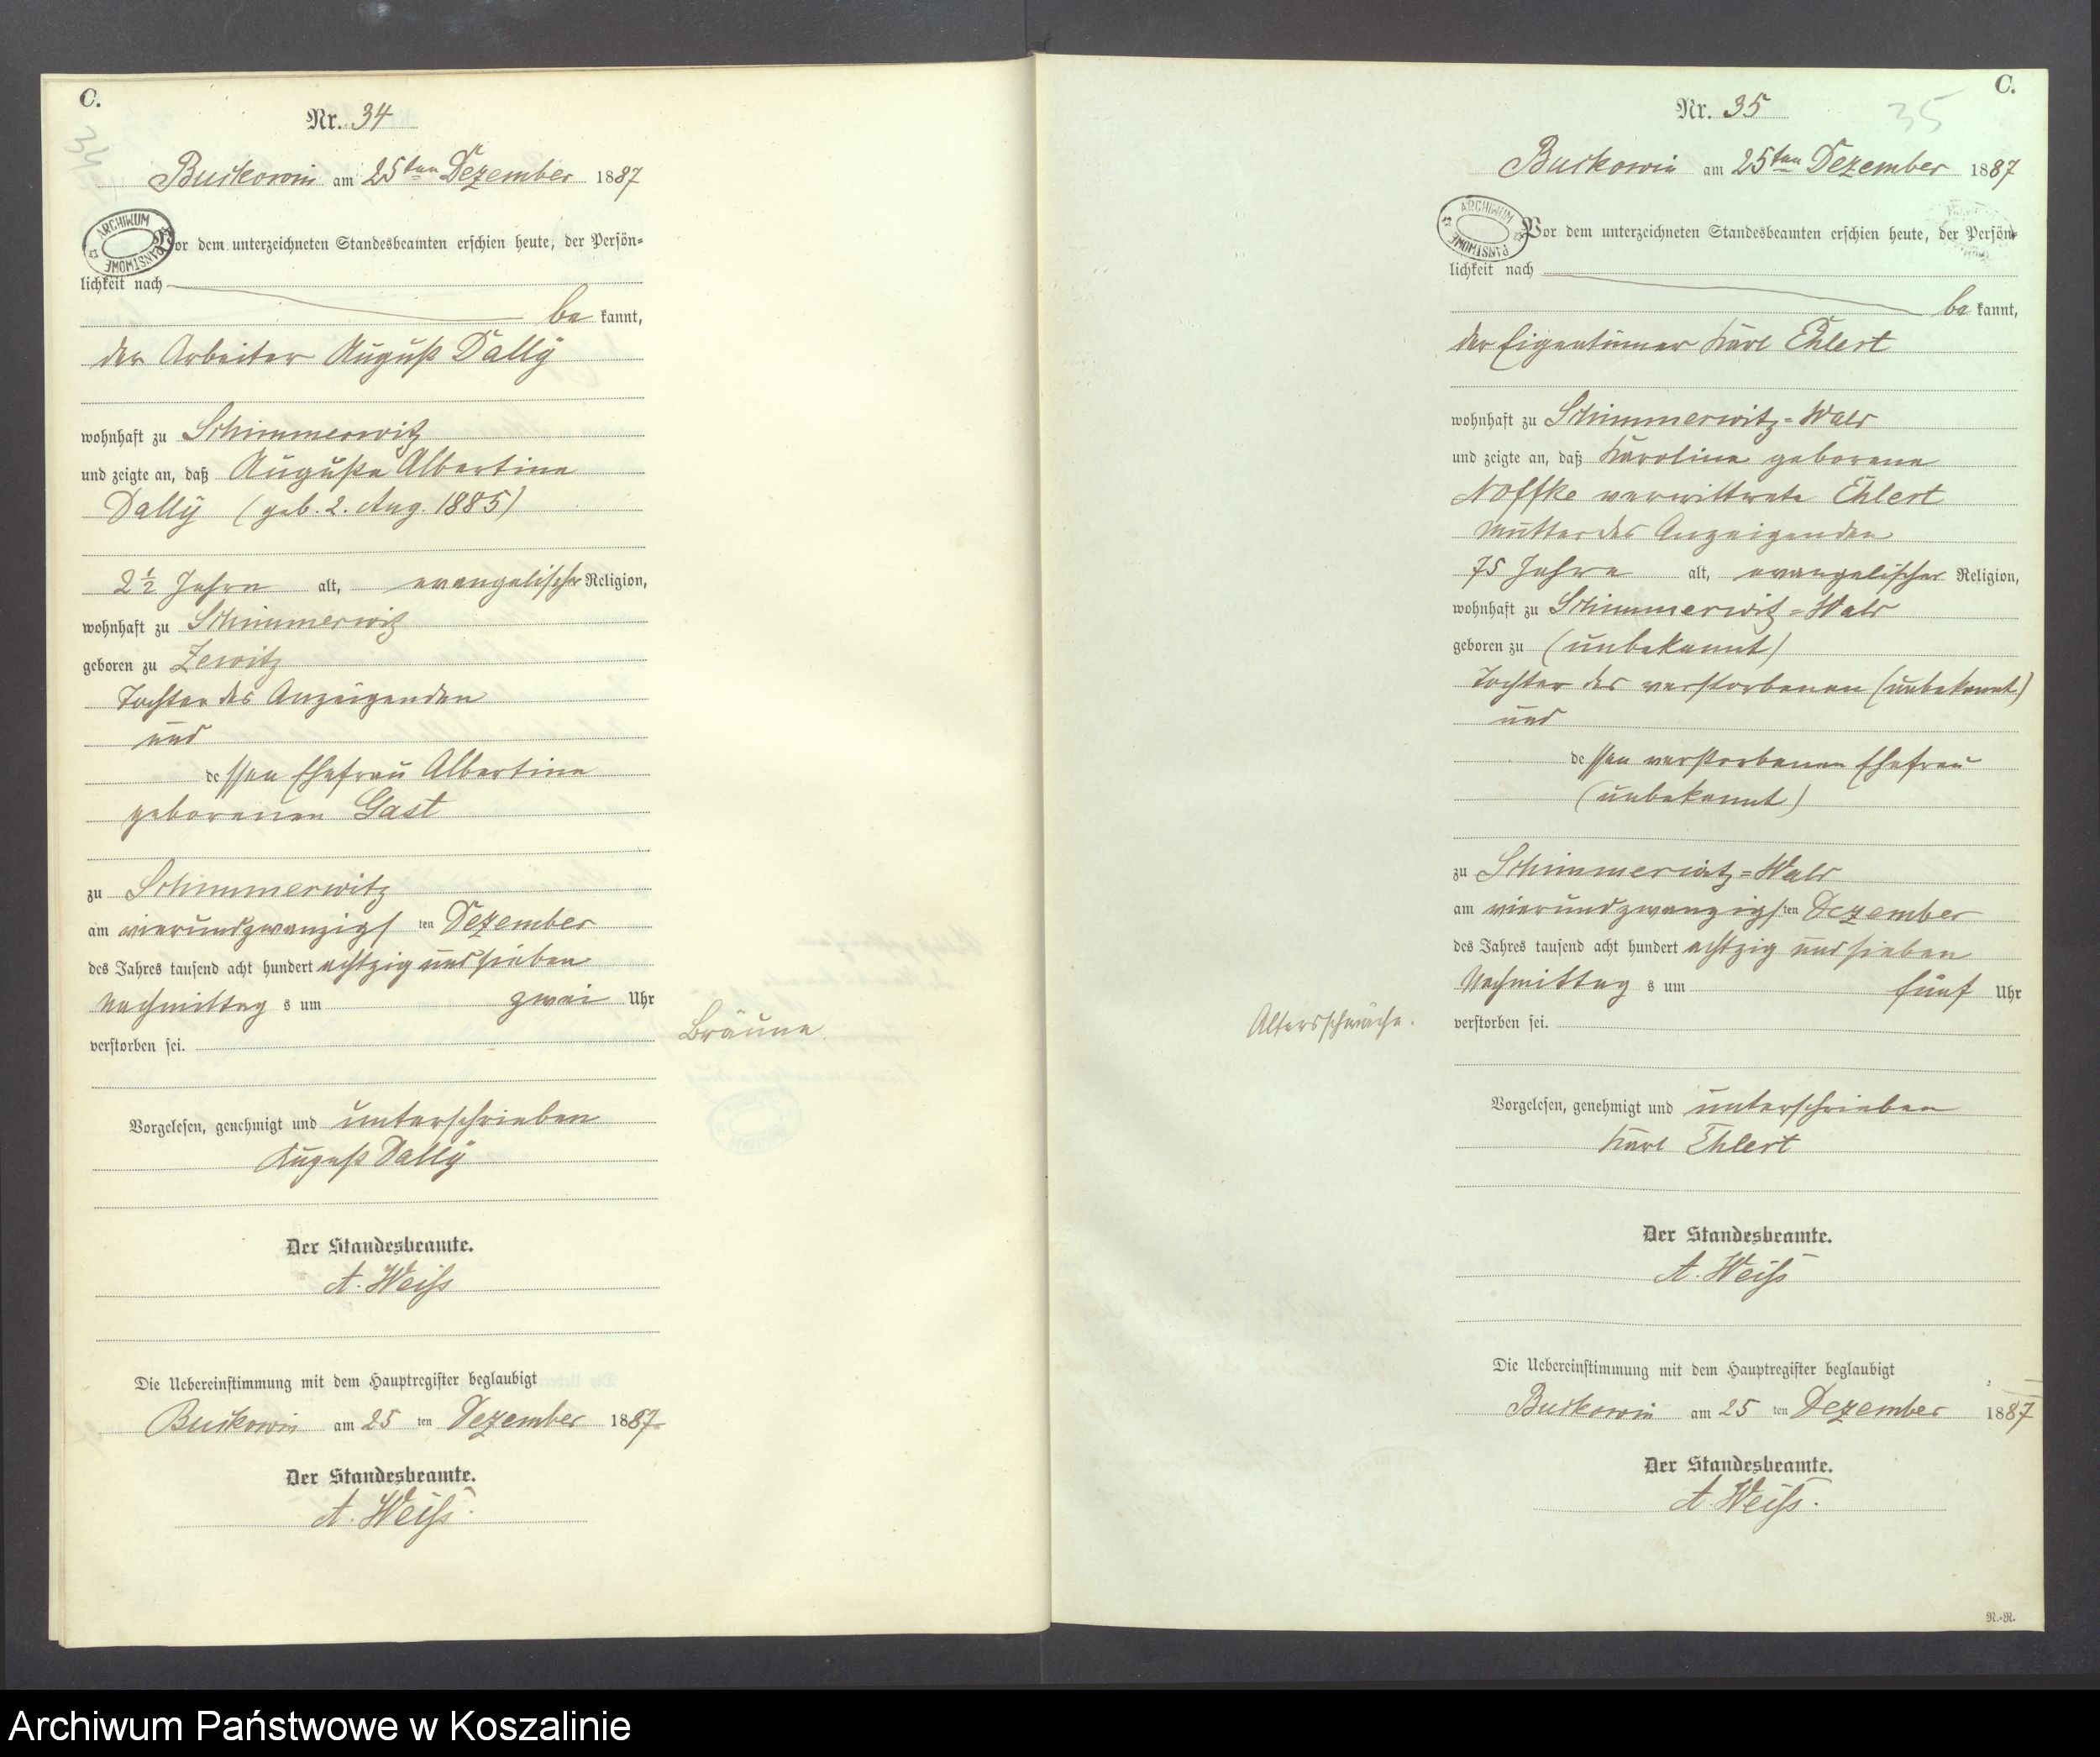 C.
34
Nr. 34
Buckowin am 25ten Dezember 1887
ARCHIWUM PAŃSTWOWE
Vor dem unterzeichneten Standesbeamten erschien heute, der Persön=
lichkeit nach
be kannt,
der Arbeiter August Dally
wohnhaft zu Schimmerwitz
und zeigte an, daß Auguste Albertine
Dally (geb. 2. Aug. 1885)
2 1/2 Jahre alt, evangelischer Religion,
wohnhaft zu Schimmerwitz
geboren zu Zewitz
Tochter des Anzeigenden
und
dessen Ehefrau Albertine
geborenen Gast
zu Schimmerwitz
am vierundzwanzigsten Dezember
des Jahres tausend acht hundert achtzig und sieben
Nachmittag s um zwei Uhr
verstorben sei.
Bräune.
Vorgelesen, genehmigt und unterschrieben
August Dally
Der Standesbeamte.
A. Weiß
Die Uebereinstimmung mit dem Hauptregister beglaubigt
Buckowin am 25 ten Dezember 1887
Der Standesbeamte.
A. Weiß.
C.
Nr. 35
35
Buckowin am 25ten Dezember 1887
ARCHIWUM PAŃSTWOWE
Vor dem unterzeichneten Standesbeamten erschien heute, der Persön=
lichkeit nach
be kannt,
der Eigentümer Karl Ehlert
wohnhaft zu Schimmerwitz=Wald
und zeigte an, daß Karoline geborene
Noffke verwittwete Ehlert
Mutter des Anzeigenden
75 Jahre alt, evangelischer Religion,
wohnhaft zu Schimmerwitz=Wald
geboren zu (unbekannt)
Tochter des verstorbenen (unbekannt)
und
dessen verstorbenen Ehefrau
(unbekannt)
zu Schimmerwitz=Wald
am vierundzwanzigsten Dezember
des Jahres tausend acht hundert achtzig und sieben
Nachmittag s um fünf Uhr
verstorben sei.
Altersschwäche.
Vorgelesen, genehmigt und unterschrieben
Karl Ehlert
Der Standesbeamte.
A. Weiß
Die Uebereinstimmung mit dem Hauptregister beglaubigt
Buckowin am 25 ten Dezember 1887
Der Standesbeamte.
A. Weiß.
R.-R.
Archiwum Państwowe w Koszalinie